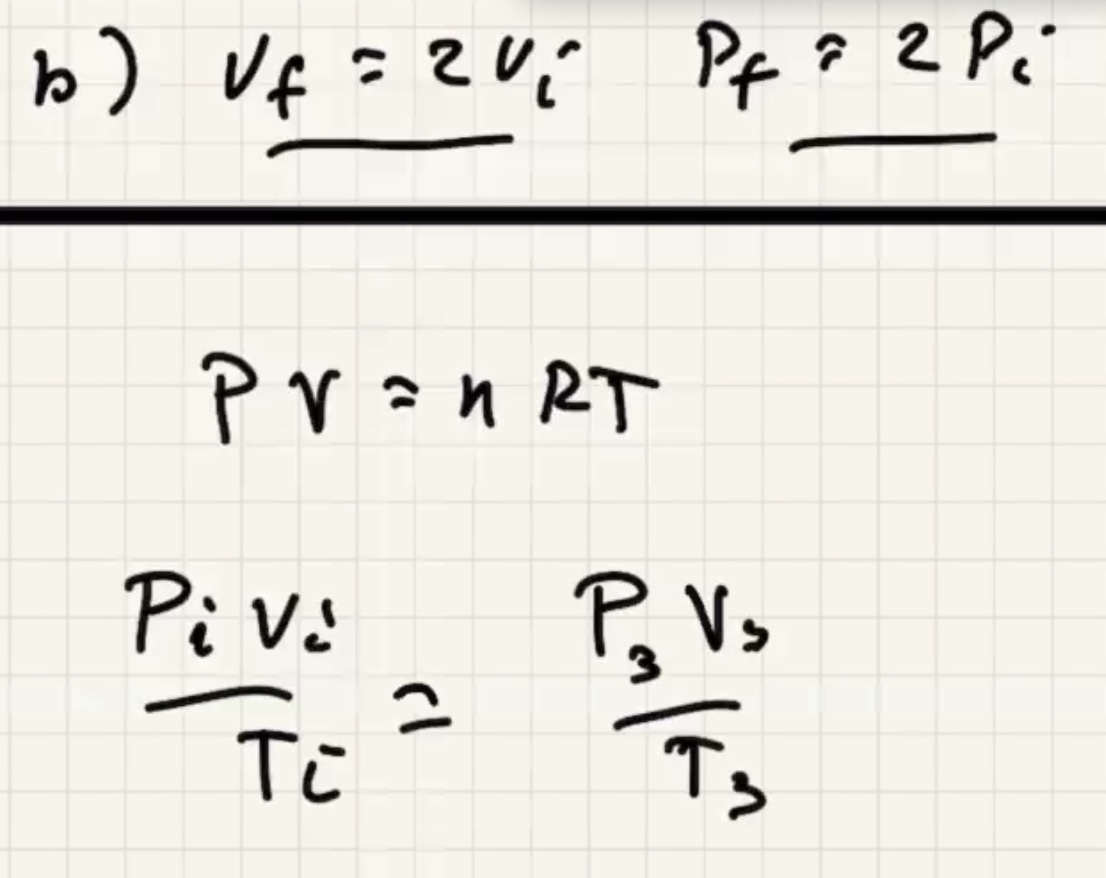 b) Vf = 2Vi Pf = 2Pi
PV = nRT
Pi Vi / Ti = P3 V3 / T3